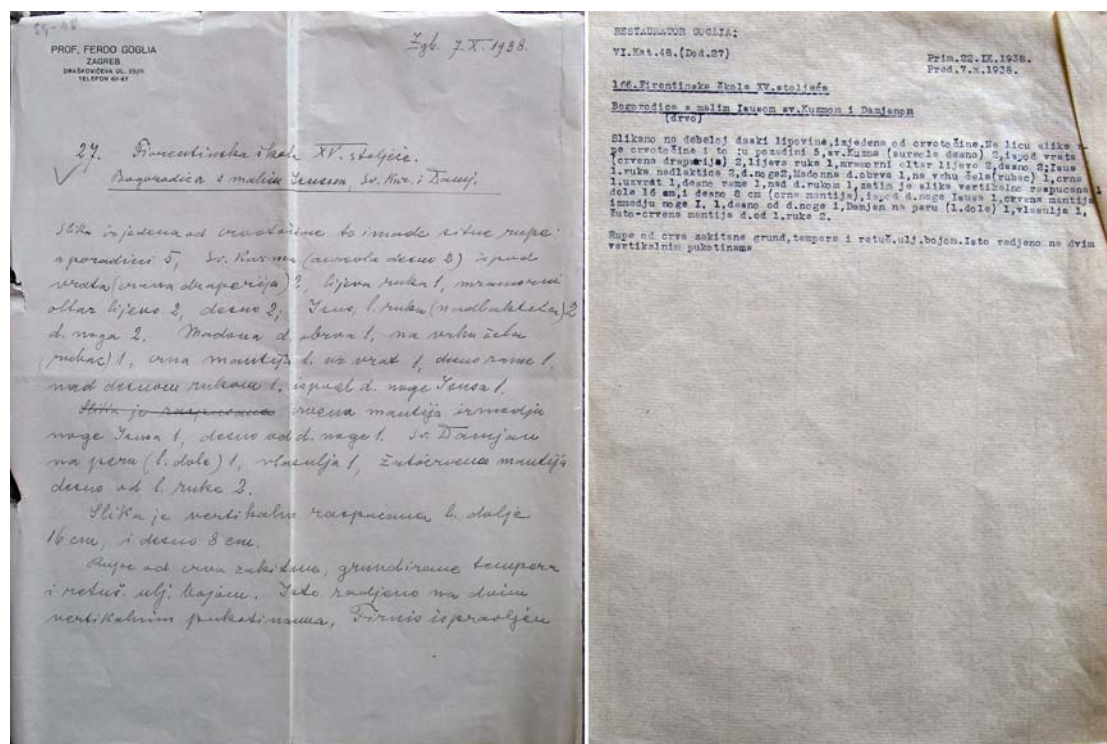 54-48
PROF. FERDO GOGLIA
ZAGREB
DRAŠKOVIĆEVA UL.
TELEFON
Zgb. 7.X.1938.
27. Fiorentinska škola XV. stoljeće.
Bogorodica s malim Isusom, Sv. Kuz. i Damj.
Slika izjedena od crvotočine te imade sitne rupe:
u pozadini 5, Sv. Kuzma (aureola desno 2) ispod
vrata (crvena draperija) 2, lijeva ruka 1, mramorni
oltar lijevo 2, desno 2; Isus, l. ruka (nadlaktica) 2
d. noga 2. Madona d. obrva 1, na vrhu čela
(rubac) 1, crna mantija l. uz vrat 1, desno rame 1,
nad desnom rukom 1. ispod d. noge Isusa 1,
Slika je raspucana crvena mantija izmedju
noge Isusa 1, desno od d. noge 1. Sv. Damjan
na peru (l. dole) 1, vlasulja 1, žutocrvena mantija
desno od l. ruke 2.
Slika je vertikalno raspucana l. dolje
16 cm, i desno 8 cm.
Rupe od crva zakitane, grundirane tempera
i retuš. ulj. bojom. Isto radjeno na dvim
vertikalnim pukotinama, Firnis ispravljen
RESTAURATOR GOGLIA:
VI.Kat.48.(Dod.27)
Prim.22.IX.1938.
Pred.7.x.1938.
166.Firentinska škola XV.stoljeća
Bogorodica s malim Isusom sv.Kuzmom i Damjanom
(drvo)
Slikano na debeloj daski lipovine,izjedena od crvotočine.Na licu slike
pe crvotočine i to :u pozadini 5,sv.Kuzma (aureola desno) 2,ispod vrata
(crvena draperija) 2,lijeva ruka 1,mramorni oltar lijevo 2,desno 2;Isus
l.ruka nadlaktica 2,d.noga2,Madonna d.obrva 1,na vrhu čela(rubac) 1,crna
l.uzvrat 1,desno rame 1,nad d.rukom 1,zatim je slika vertikalno raspucana
dole 16 cm,i desno 8 cm (crna mantija),ispod d.noge Isusa 1,crvena mantija
izmedju noge I. 1,desno od d.noge 1,Damjan na peru (l.dole) 1,vlasulja 1,
žuto-crvena mantija d.od l.ruke 2.
Rupe od crva zakitane grund,tempera i retuš.ulj.bojom.Isto radjeno na dvim
vertikalnim pukotinama